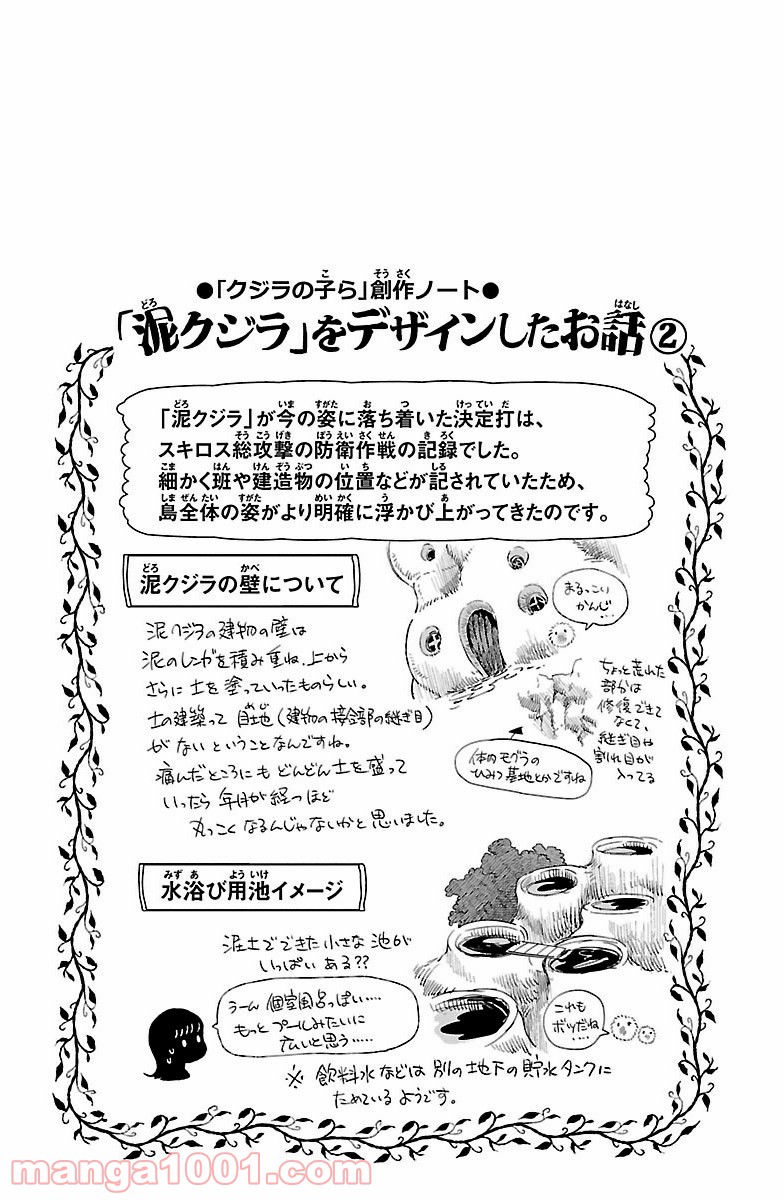 ●「クジラの子ら」創作ノート●
「泥クジラ」をデザインしたお話②
「泥クジラ」が今の姿に落ち着いた決定打は、
スキロス総攻撃の防衛作戦の記録でした。
細かく班や建造物の位置などが記されていたため、
島全体の姿がより明確に浮かび上がってきたのです。
泥クジラの壁について
泥クジラの建物の壁は
泥のレンガを積み重ね、上から
さらに土を塗っていったものらしい。
土の建築って目地(建物の接合部の継ぎ目)
がないということなんですね。
痛んだところにもどんどん土を盛って
いったら年月が経つほど
丸っこくなるんじゃないかと思いました。
まるっこい
かんじ…
ちょっと荒れた
部分は
修復できて
なくて、
継ぎ目や
割れ目が
入ってる
体内モグラの
ひみつ基地とかですね
水浴び用池イメージ
泥土でできた小さな池が
いっぱいある??
うーん個室風呂っぽい……
もっとプールみたいに
広いと思う……
これも
ボツだね
……
※飲料水などは別の地下の貯水タンクに
ためているようです。
manga1001.com